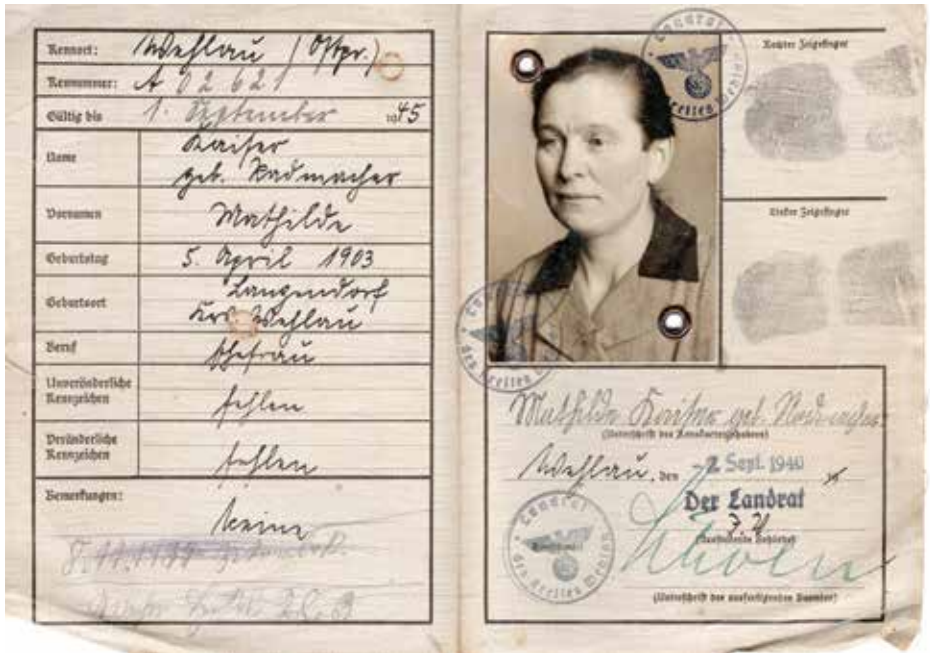 Kennort: Wehlau / Ostpr.)
Kennummer: A 02621
Gültig bis 1. September 1945
Name Kaiser
geb. Radmacher
Vornamen Mathilde
Geburtstag 5. April 1903
Geburtsort Langendorf
Krs. Wehlau
Beruf Ehefrau
Unveränderliche
Kennzeichen fehlen
Veränderliche
Kennzeichen fehlen
Bemerkungen: keine
Landrat
des Kreises Wehlau
Rechter Zeigefinger
Linker Zeigefinger
Landrat
des Kreises
Mathilde Kaiser geb. Radmacher
(Unterschrift des Kennkarteninhabers)
Wehlau, den -2. Sept. 1940
Der Landrat
J. V.
(Ausstellende Behörde)
Landrat
des Kreises Wehlau
(Unterschrift des ausfertigenden Beamten)